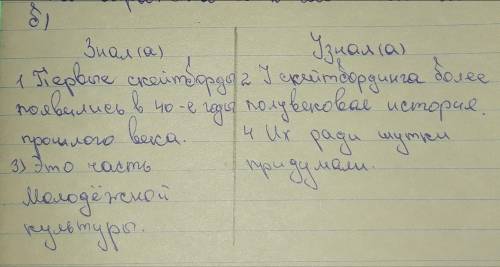 б)
Знал(а) Узнал(а)
1 Первые скейтборды 2 У скейтбординга более
появились в 40-е годы полувековая история.
прошлого века. 4 Их ради шутки
3) Это часть придумали.
молодёжной
культуры.